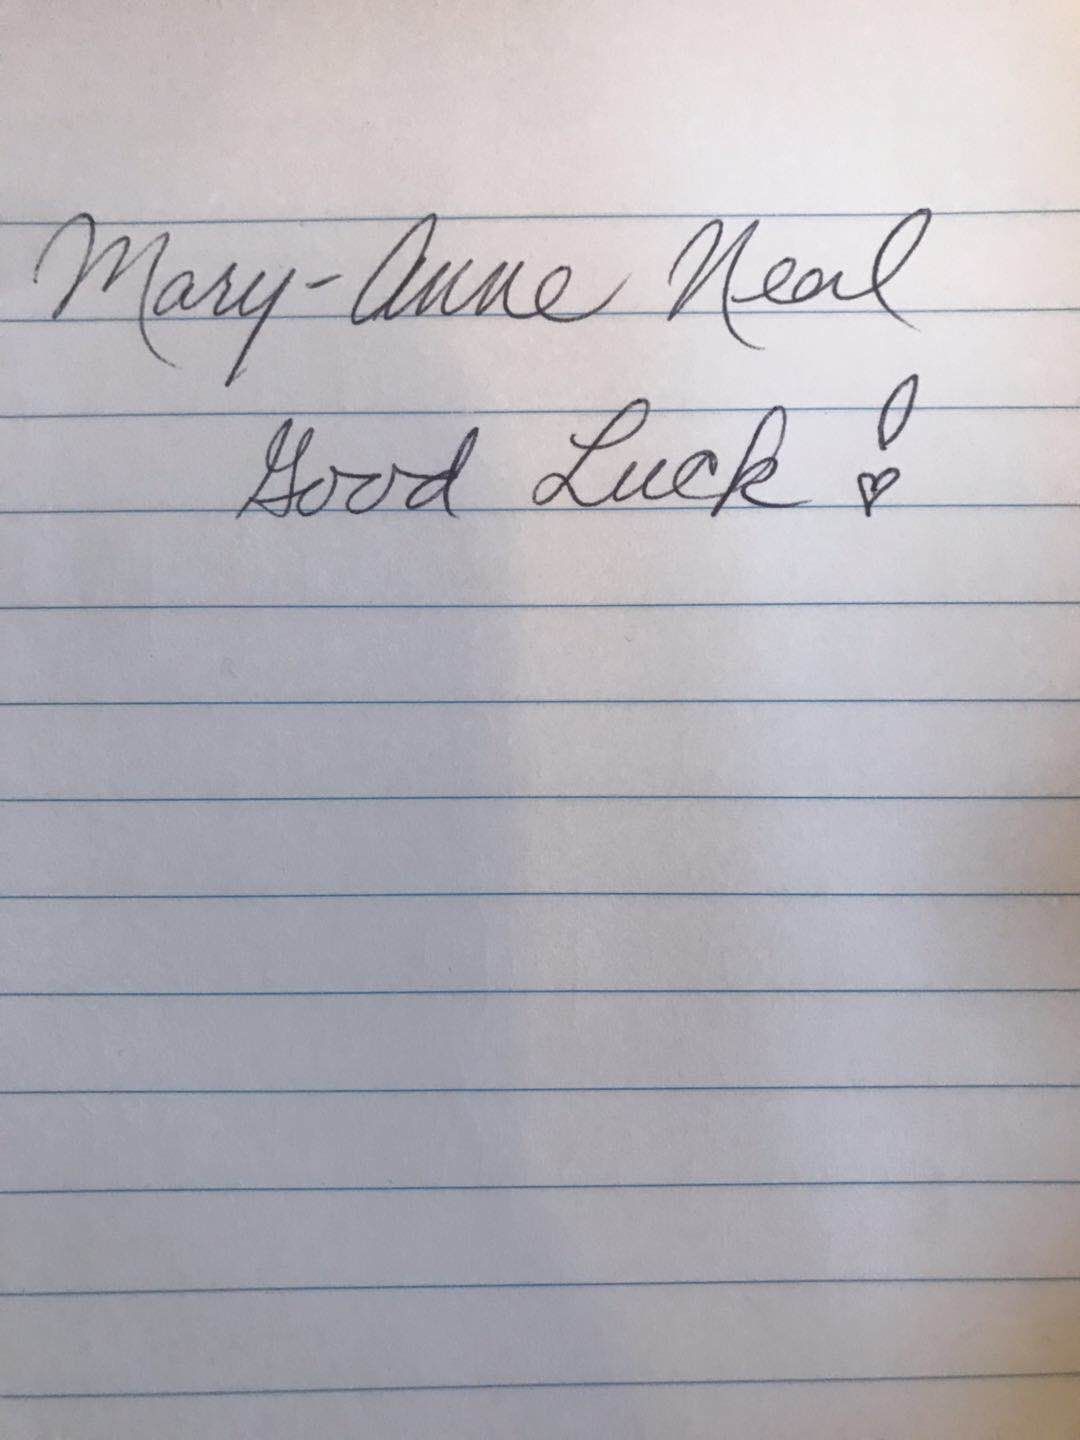 Mary-Anne Neal
Good Luck!